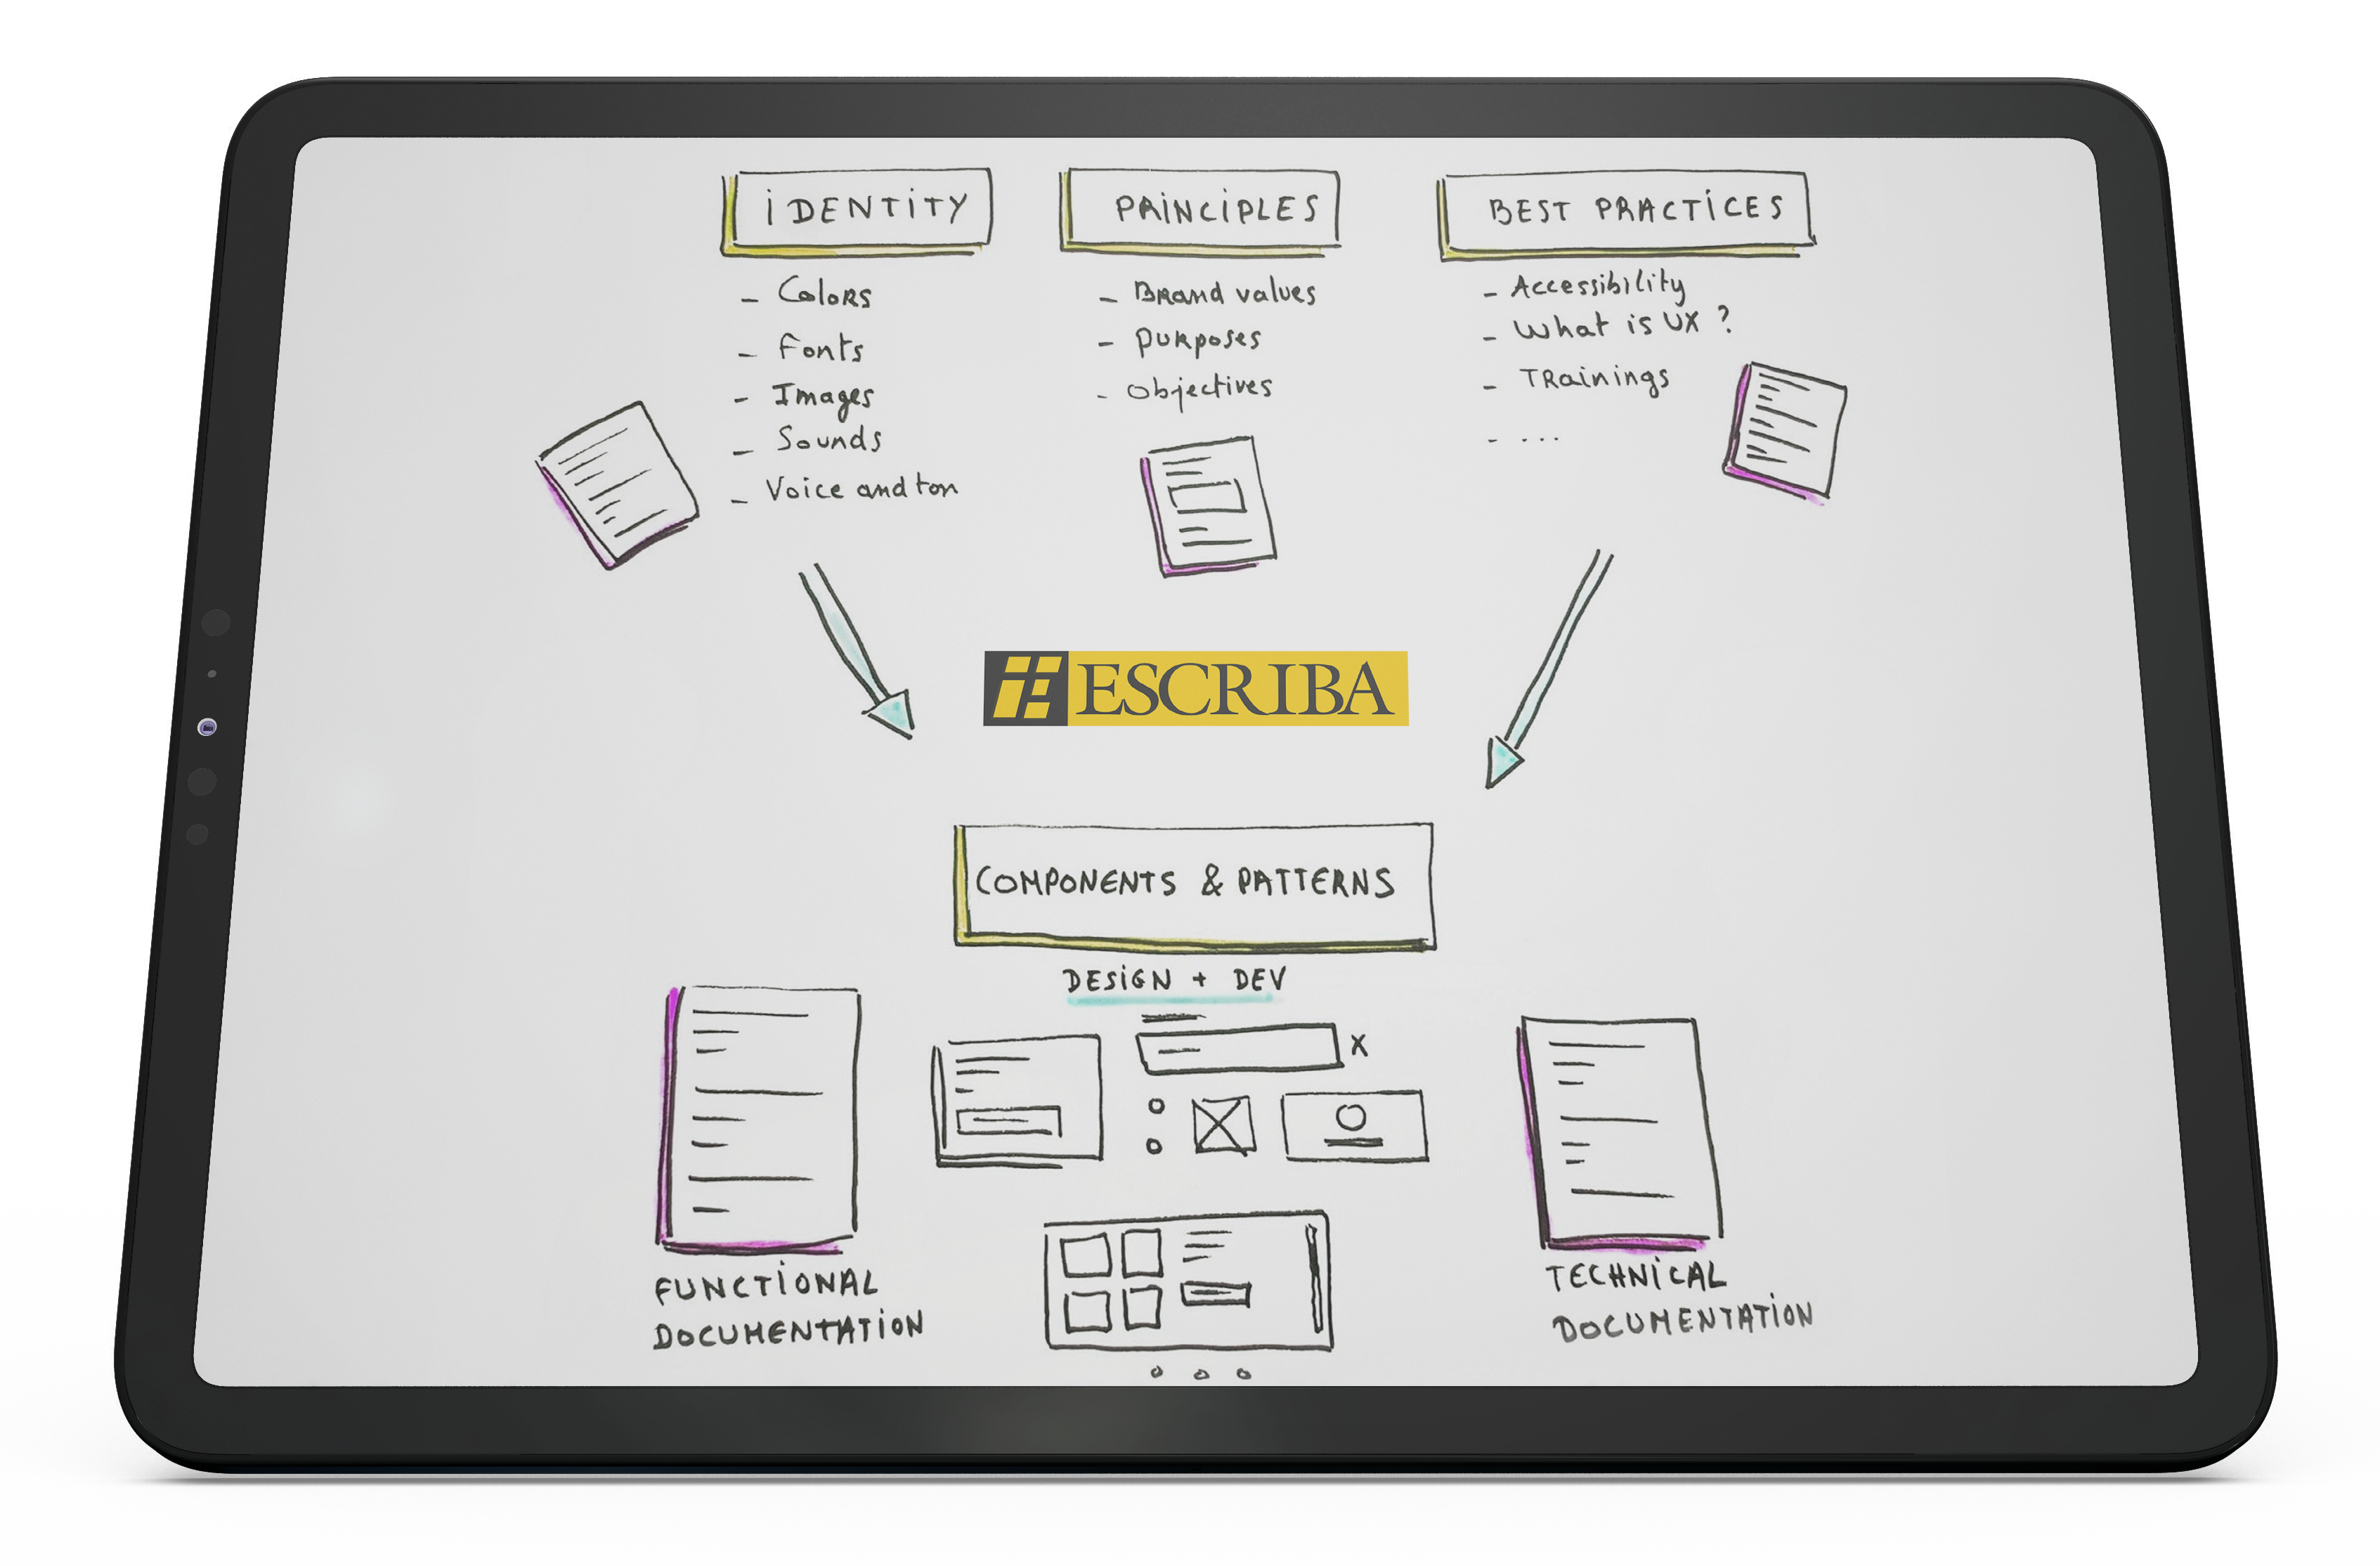 iDENTiTY
- Colors
- Fonts
- Images
- Sounds
- Voice and ton
PRiNCiPLES
- Brand values
- Purposes
- Objectives
BEST PRACTiCES
- Accessibility
- What is UX ?
- TRainings
- ....
ESCRIBA
COMPONENTS & PATTERNS
DESiGN + DEV
x
FUNCTiONAL
DOCUMENTATiON
TECHNiCAL
DOCUMENTATiON